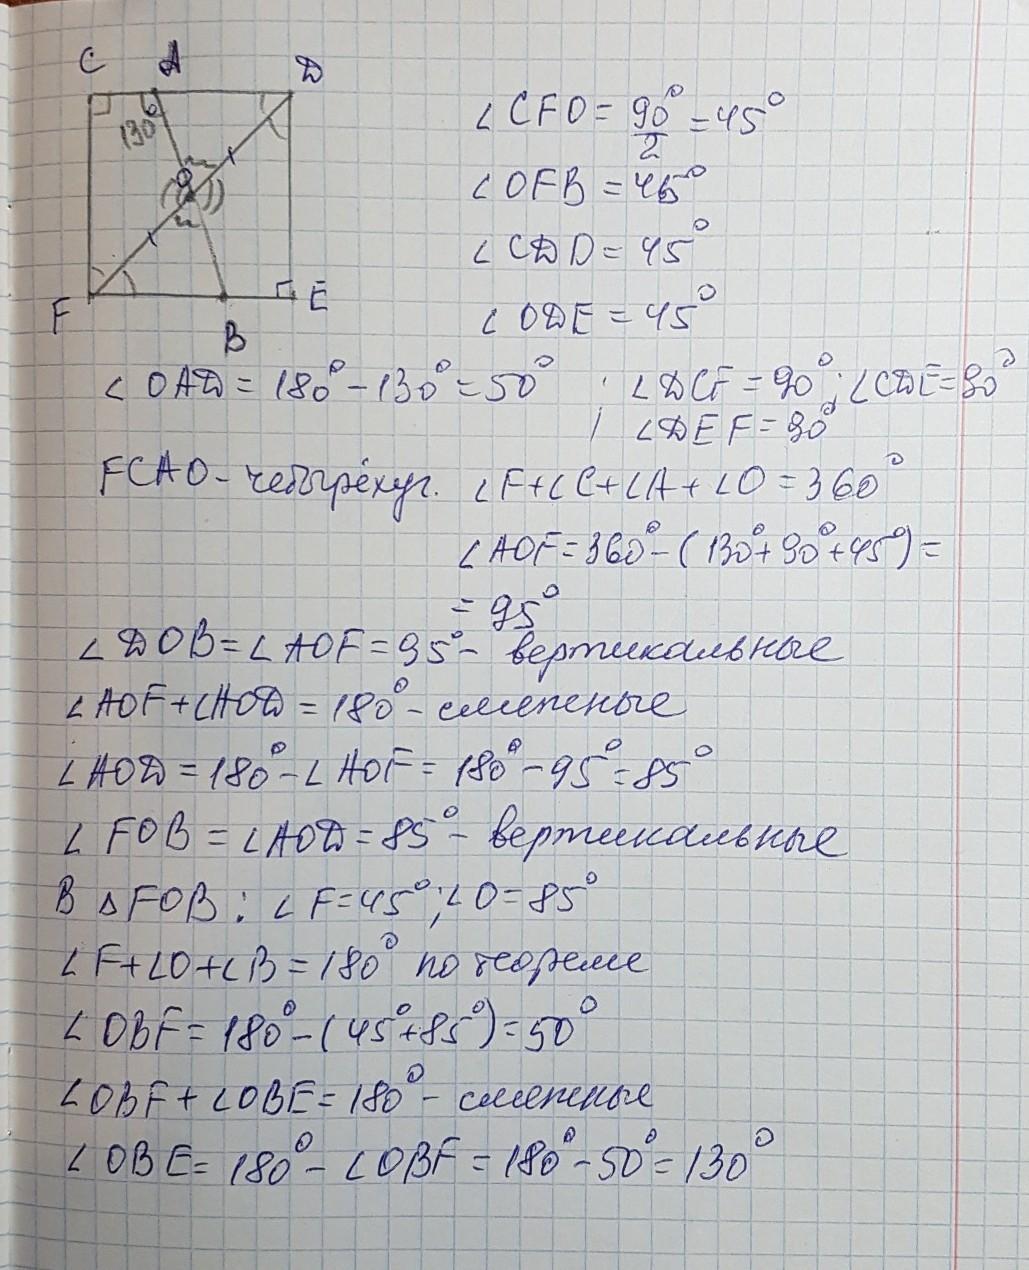 C A D
130°
O
F B E
∠CFO = 90°/2 = 45°
∠OFB = 45°
∠CDO = 45°
∠ODE = 45°
∠OAD = 180° - 130° = 50° ; ∠DCF = 90° ; ∠CDE = 90°
∠DEF = 90°
FCAO - четырёхуг. ∠F + ∠C + ∠A + ∠O = 360°
∠AOF = 360° - (130° + 90° + 45°) =
= 95°
∠DOB = ∠AOF = 95° - вертикальные
∠AOF + ∠AOD = 180° - смежные
∠AOD = 180° - ∠AOF = 180° - 95° = 85°
∠FOB = ∠AOD = 85° - вертикальные
В △FOB : ∠F = 45° ; ∠O = 85°
∠F + ∠O + ∠B = 180° по теореме
∠OBF = 180° - (45° + 85°) = 50°
∠OBF + ∠OBE = 180° - смежные
∠OBE = 180° - ∠OBF = 180° - 50° = 130°